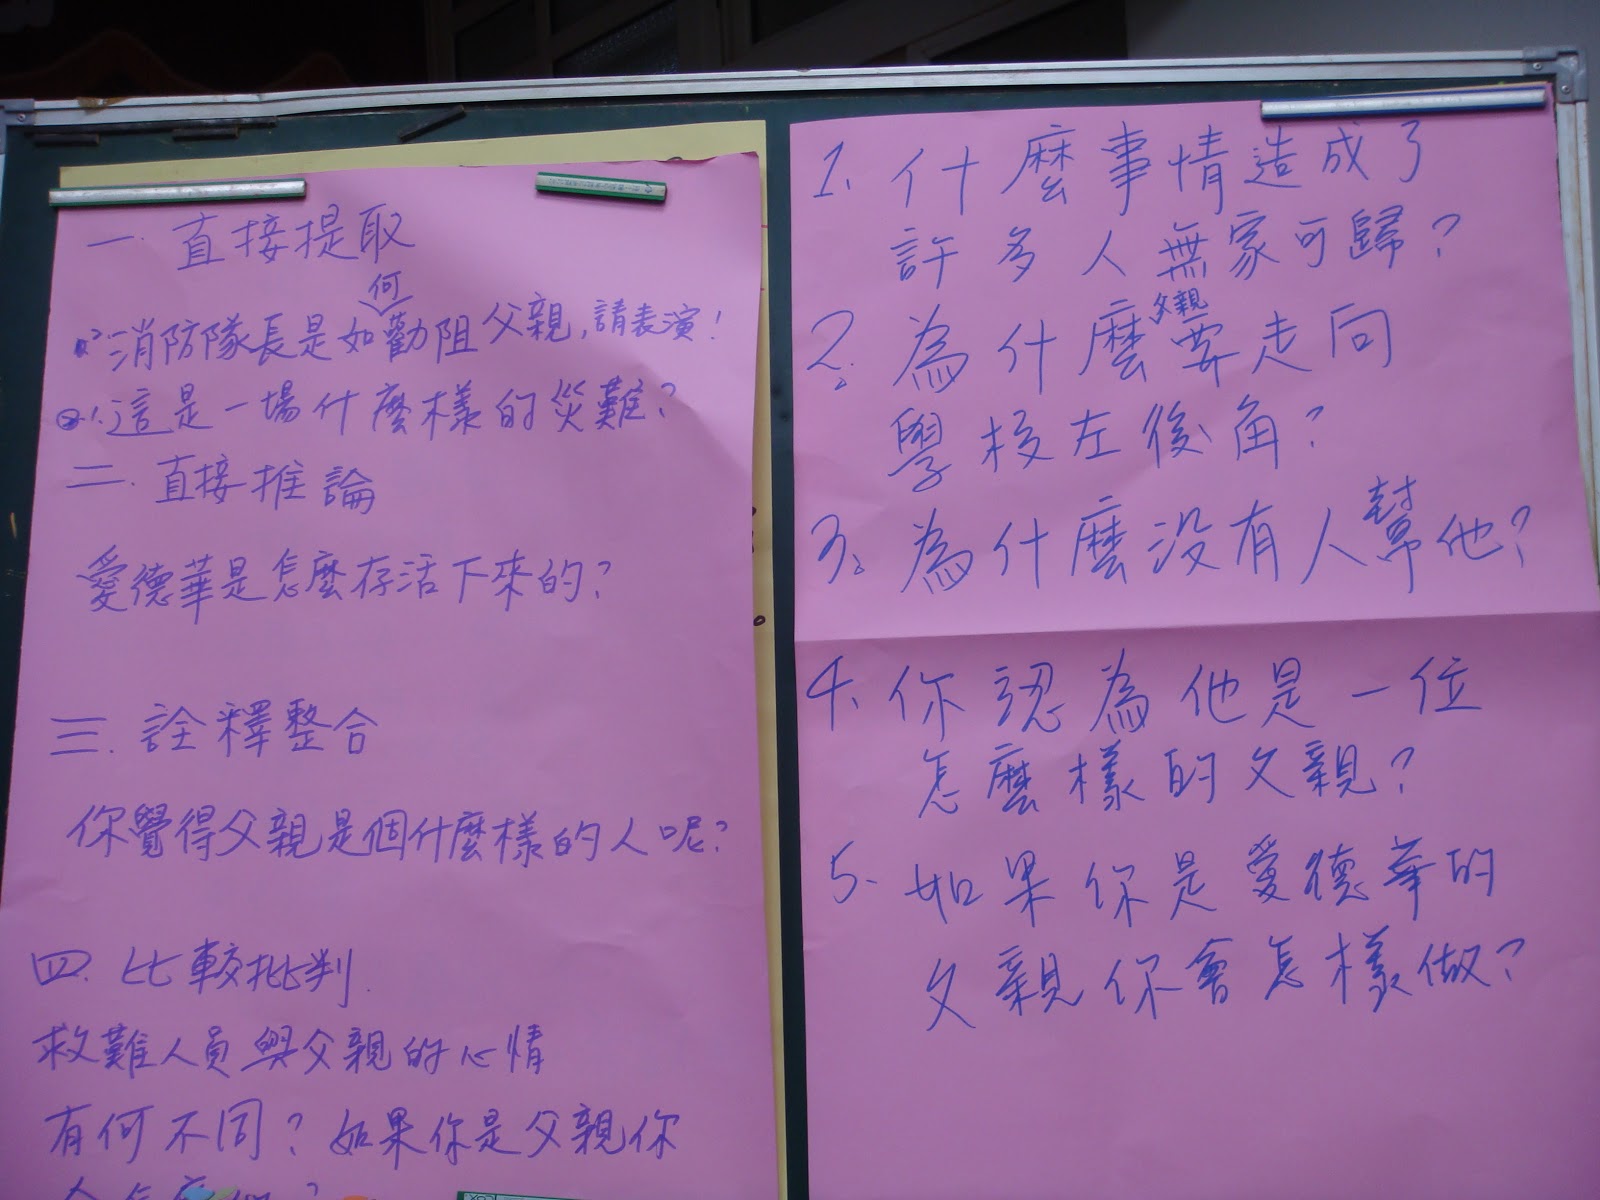 一. 直接提取
2消防隊長是如何勸阻父親,請表演!
1.這是一場什麼樣的災難?
二. 直接推論
愛德華是怎麼存活下來的?
三. 詮釋整合
你覺得父親是個什麼樣的人呢?
四. 比較批判.
救難人員與父親的心情
有何不同?如果你是父親你
1、什麼事情造成了
許多人無家可歸?
2. 為什麼父親要走向
學校左後角?
3. 為什麼没有人幫他?
4、你認為他是一位
怎麼樣的父親?
5、如果你是愛德華的
父親你會怎樣做?